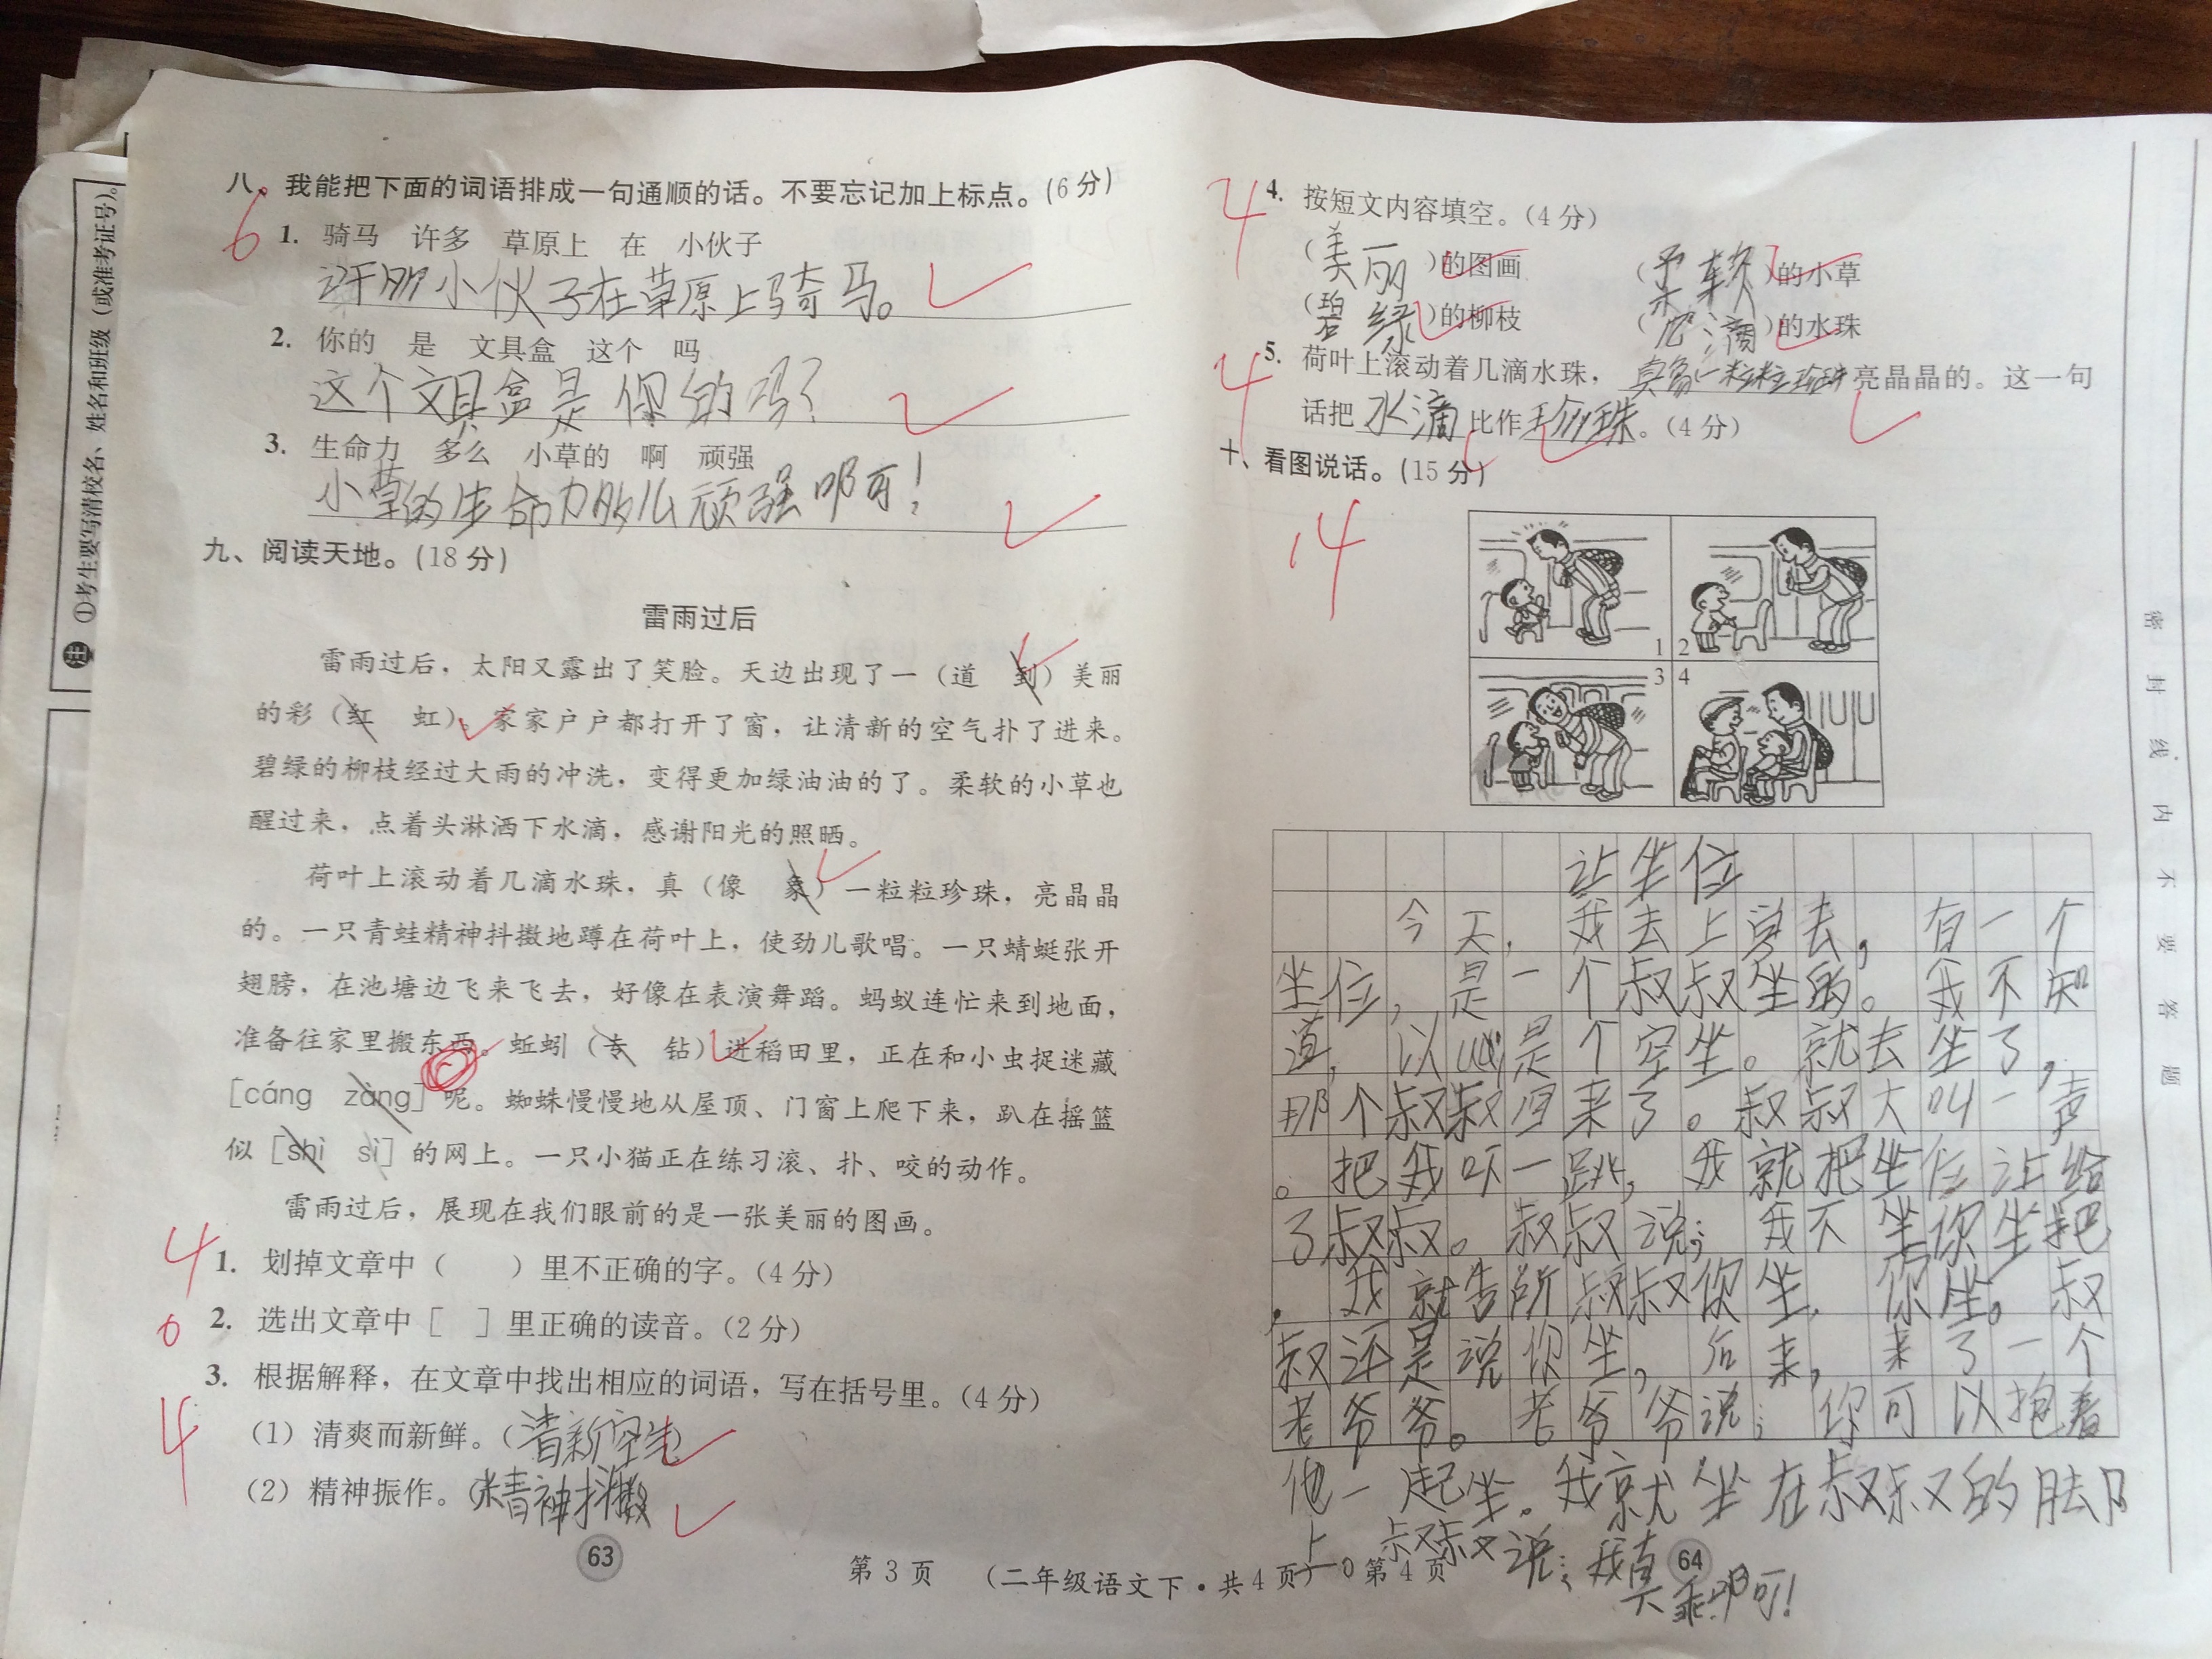 注 ①考生要写清校名、姓名和班级（或准考证号）。
八。我能把下面的词语排成一句通顺的话。不要忘记加上标点。(6分)
6
1. 骑马 许多 草原上 在 小伙子
许多小伙子在草原上骑马。
2. 你的 是 文具盒 这个 吗
这个文具盒是你的吗？
3. 生命力 多么 小草的 啊 顽强
小草的生命力多么顽强啊！
九、阅读天地。(18分)
雷雨过后
雷雨过后，太阳又露出了笑脸。天边出现了一（道 到）美丽
的彩（红 虹）。家家户户都打开了窗，让清新的空气扑了进来。
碧绿的柳枝经过大雨的冲洗，变得更加绿油油的了。柔软的小草也
醒过来，点着头淋洒下水滴，感谢阳光的照晒。
荷叶上滚动着几滴水珠，真（像 象）一粒粒珍珠，亮晶晶
的。一只青蛙精神抖擞地蹲在荷叶上，使劲儿歌唱。一只蜻蜓张开
翅膀，在池塘边飞来飞去，好像在表演舞蹈。蚂蚁连忙来到地面，
准备往家里搬东西。蚯蚓（专 钻）进稻田里，正在和小虫捉迷藏
[cáng zàng]呢。蜘蛛慢慢地从屋顶、门窗上爬下来，趴在摇篮
似[shì sì]的网上。一只小猫正在练习滚、扑、咬的动作。
雷雨过后，展现在我们眼前的是一张美丽的图画。
4
1. 划掉文章中（ ）里不正确的字。(4分)
0
2. 选出文章中[ ]里正确的读音。(2分)
3. 根据解释，在文章中找出相应的词语，写在括号里。(4分)
4
(1) 清爽而新鲜。(清新空气)
(2) 精神振作。(精神抖擞)
63
第3页 （二年级语文下·共4页）
4
4. 按短文内容填空。(4分)
（美丽）的图画 （柔软）的小草
（碧绿）的柳枝 （几滴）的水珠
4
5. 荷叶上滚动着几滴水珠，真象一粒粒珍珠亮晶晶的。这一句
话把水滴比作珍珠。(4分)
十、看图说话。(15分)
14
1 2
3 4
让坐位
今天，我去上学去，有一个
坐位，是一个叔叔坐的。我不知
道，以为是个空坐。就去坐了，
那个叔叔回来了。叔叔大叫一声
。把我吓一跳，我就把坐位让给
了叔叔。叔叔说；我不坐你坐把
，我就告所叔叔你坐，你坐。叔
叔还是说你坐，后来，来了一个
老爷爷。老爷爷说；你可以抱着
他一起坐。我就坐在叔叔的脚
上 叔叔说；我真
乖啊！
第4页
64
密封线内不要答题